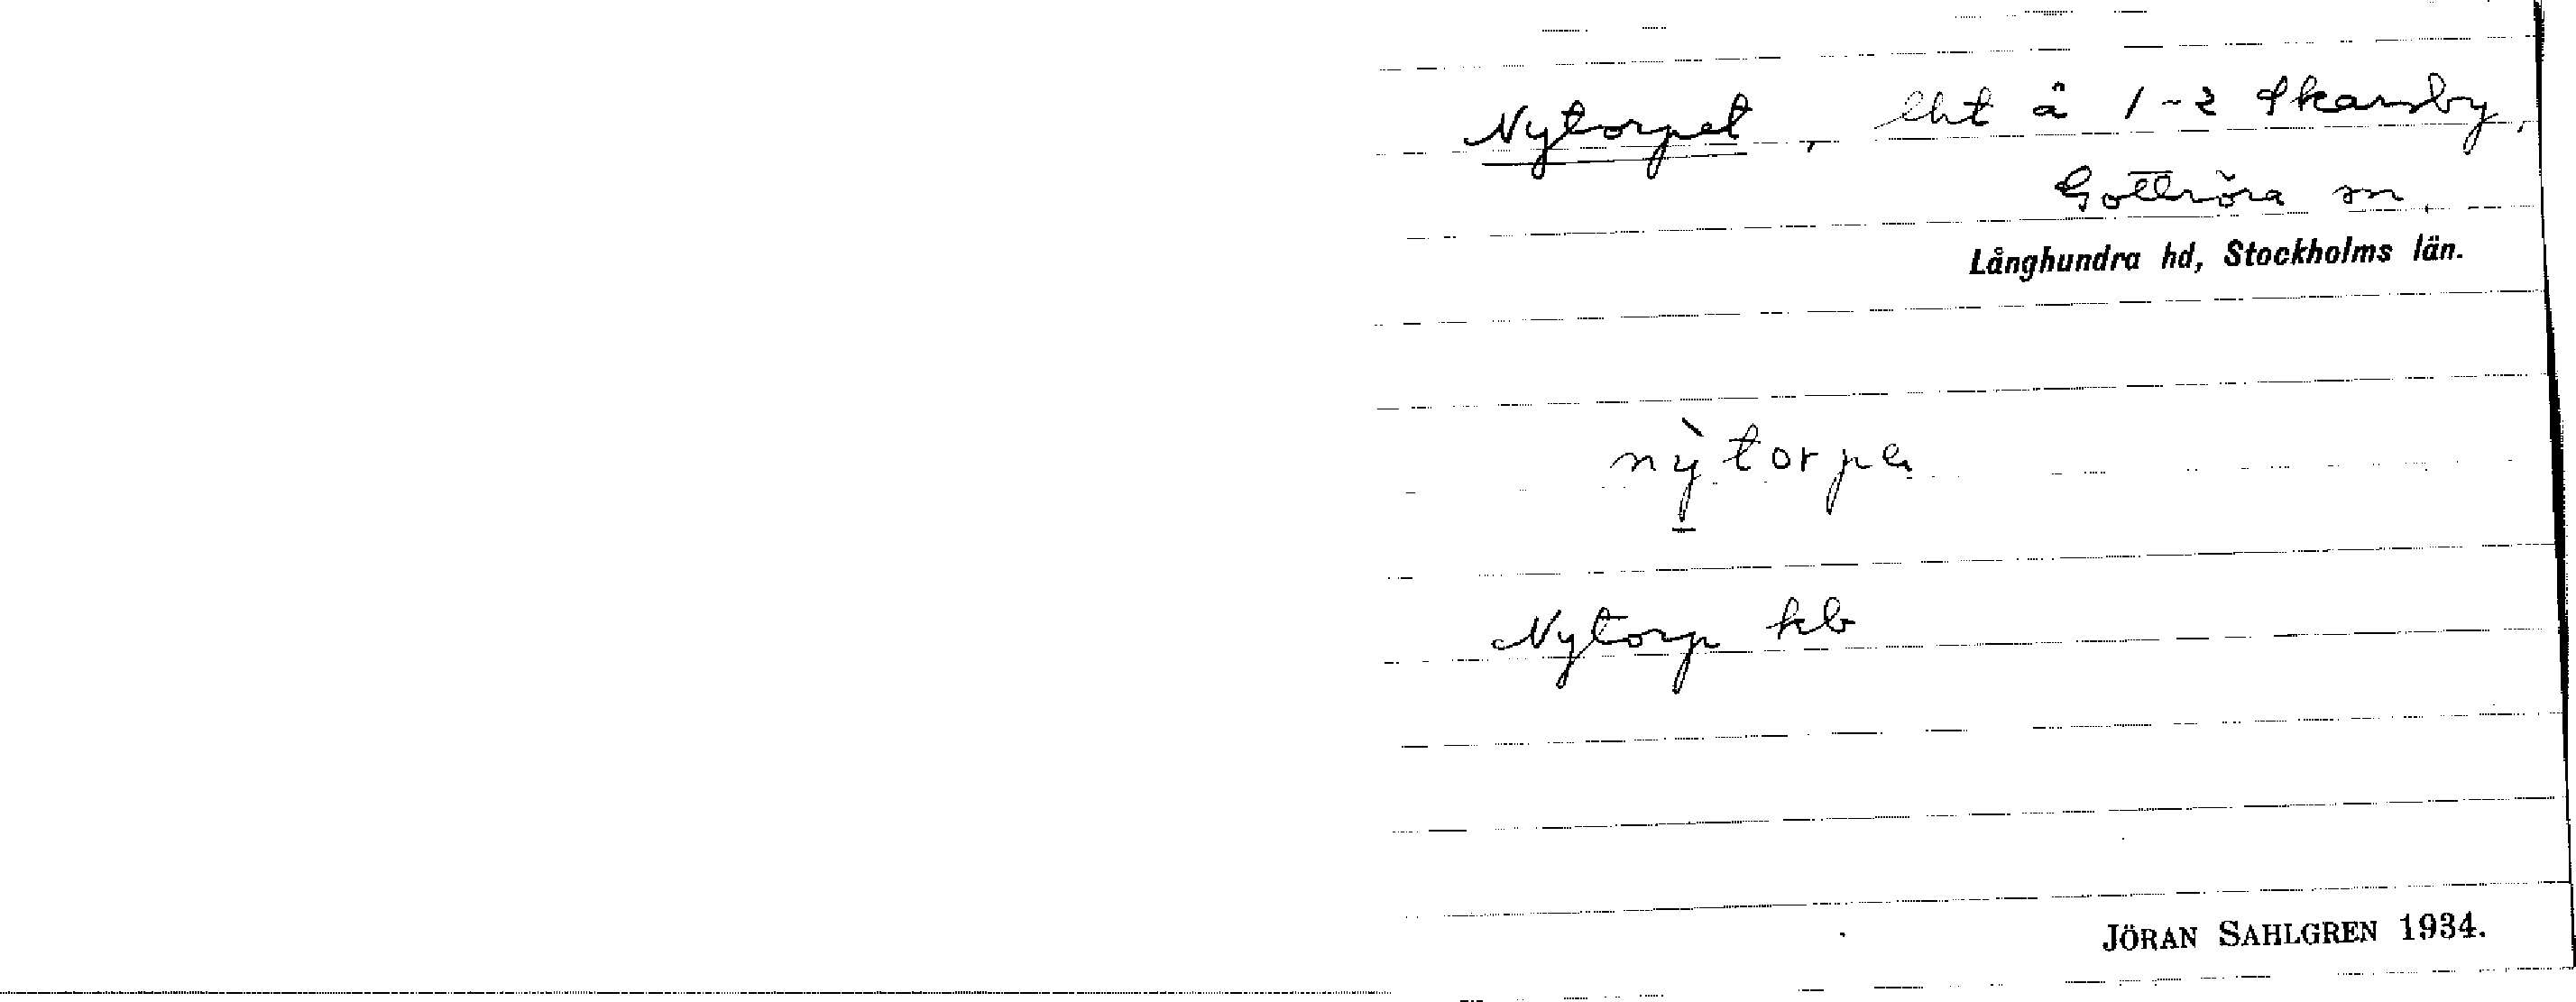 Nytorpet, lht å 1-2 Skarsby,
Gottröra sn.
Långhundra hd, Stockholms län.
nỳtorpa
Nytorp kb
JÖRAN SAHLGREN 1934.